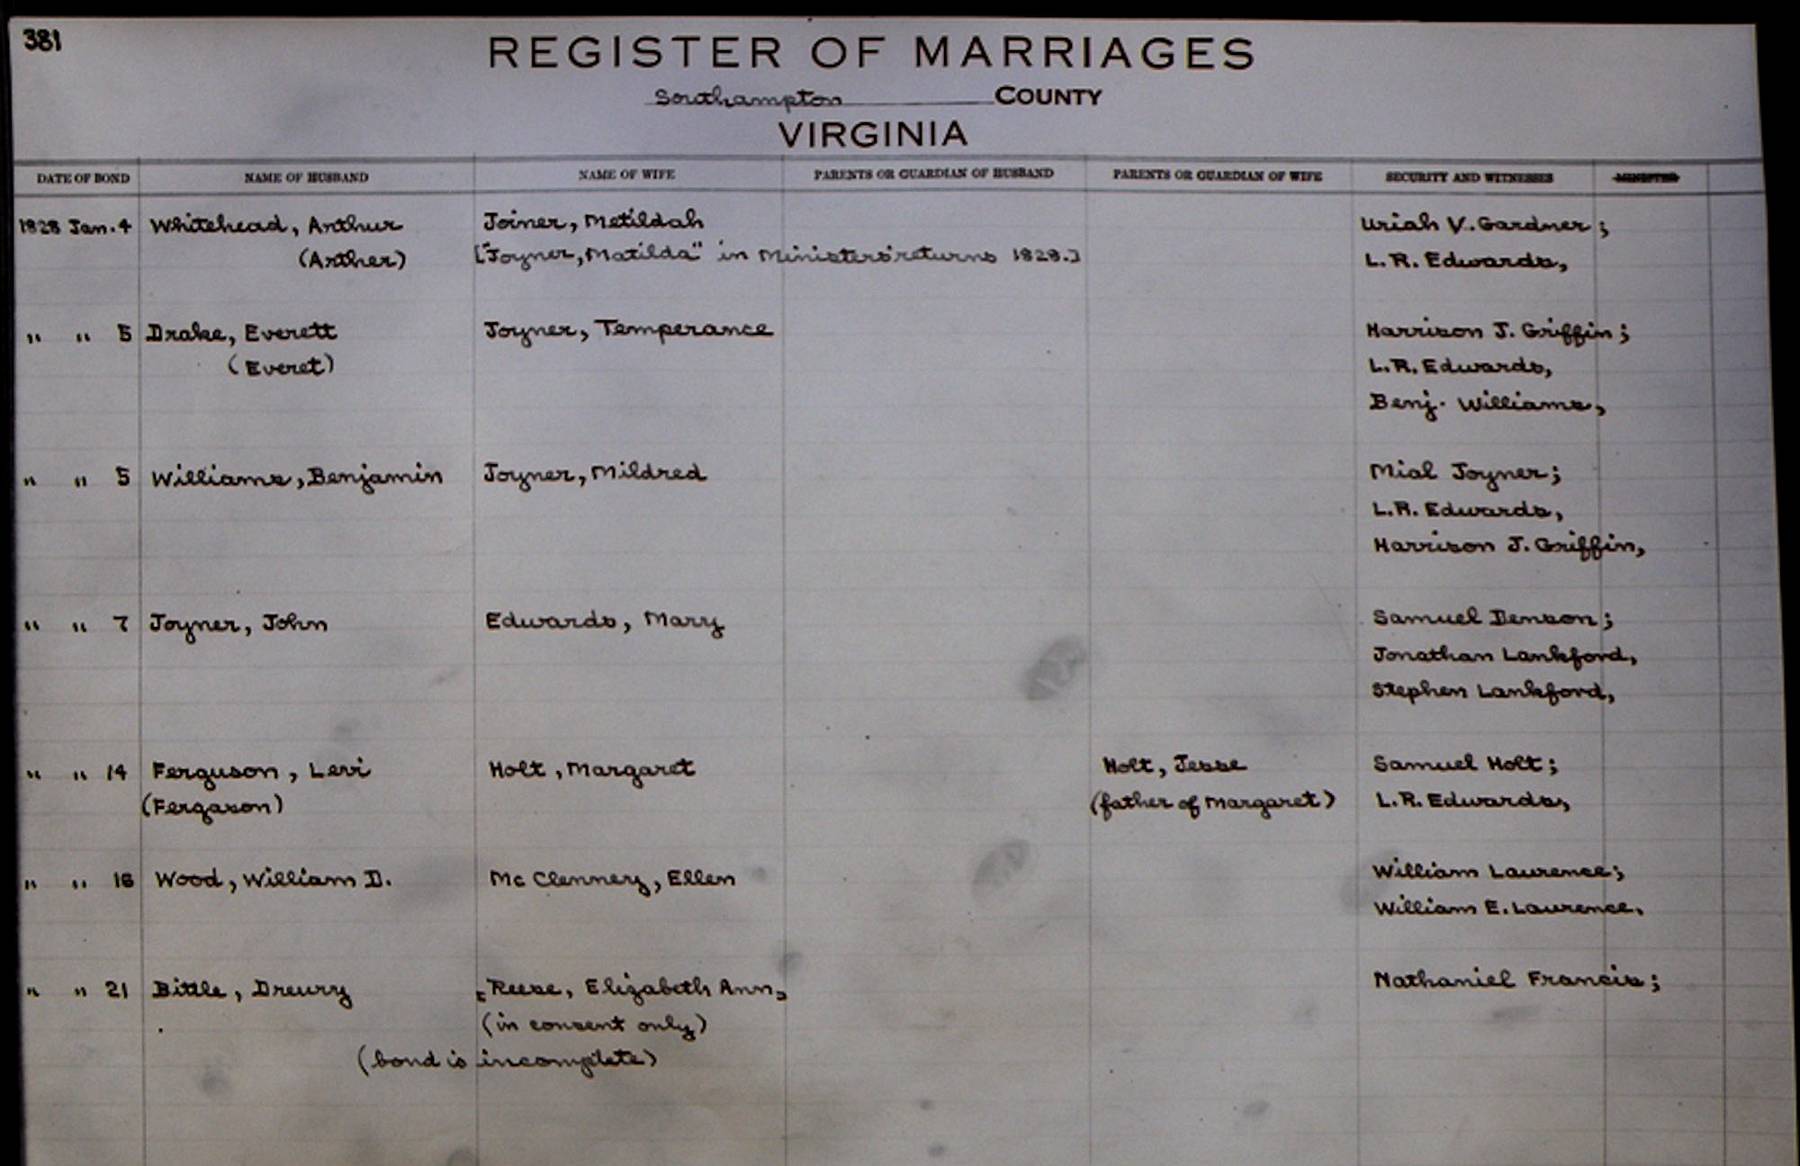 381
REGISTER OF MARRIAGES
Southampton COUNTY
VIRGINIA
DATE OF BOND NAME OF HUSBAND NAME OF WIFE PARENTS OR GUARDIAN OF HUSBAND PARENTS OR GUARDIAN OF WIFE SECURITY AND WITNESSES MINISTER
1828 Jan. 4 Whitehead, Arthur Joiner, Metildah Uriah V. Gardner;
(Arther) ["Joyner, Matilda" in Ministers' returns 1828.] L.R. Edwards,
" " 5 Drake, Everett Joyner, Temperance Harrison J. Griffin;
(Everet) L.R. Edwards,
Benj. Williams,
" " 5 Williams, Benjamin Joyner, Mildred Mial Joyner;
L.R. Edwards,
Harrison J. Griffin,
" " 7 Joyner, John Edwards, Mary Samuel Denson;
Jonathan Lankford,
Stephen Lankford,
" " 14 Ferguson, Levi Holt, Margaret Holt, Jesse Samuel Holt;
(Fergason) (father of Margaret) L.R. Edwards,
" " 16 Wood, William D. Mc Clenney, Ellen William Laurence;
William E. Laurence,
" " 21 Bittle, Drewry [Reese, Elizabeth Ann] Nathaniel Francis;
(in consent only)
(bond is incomplete)